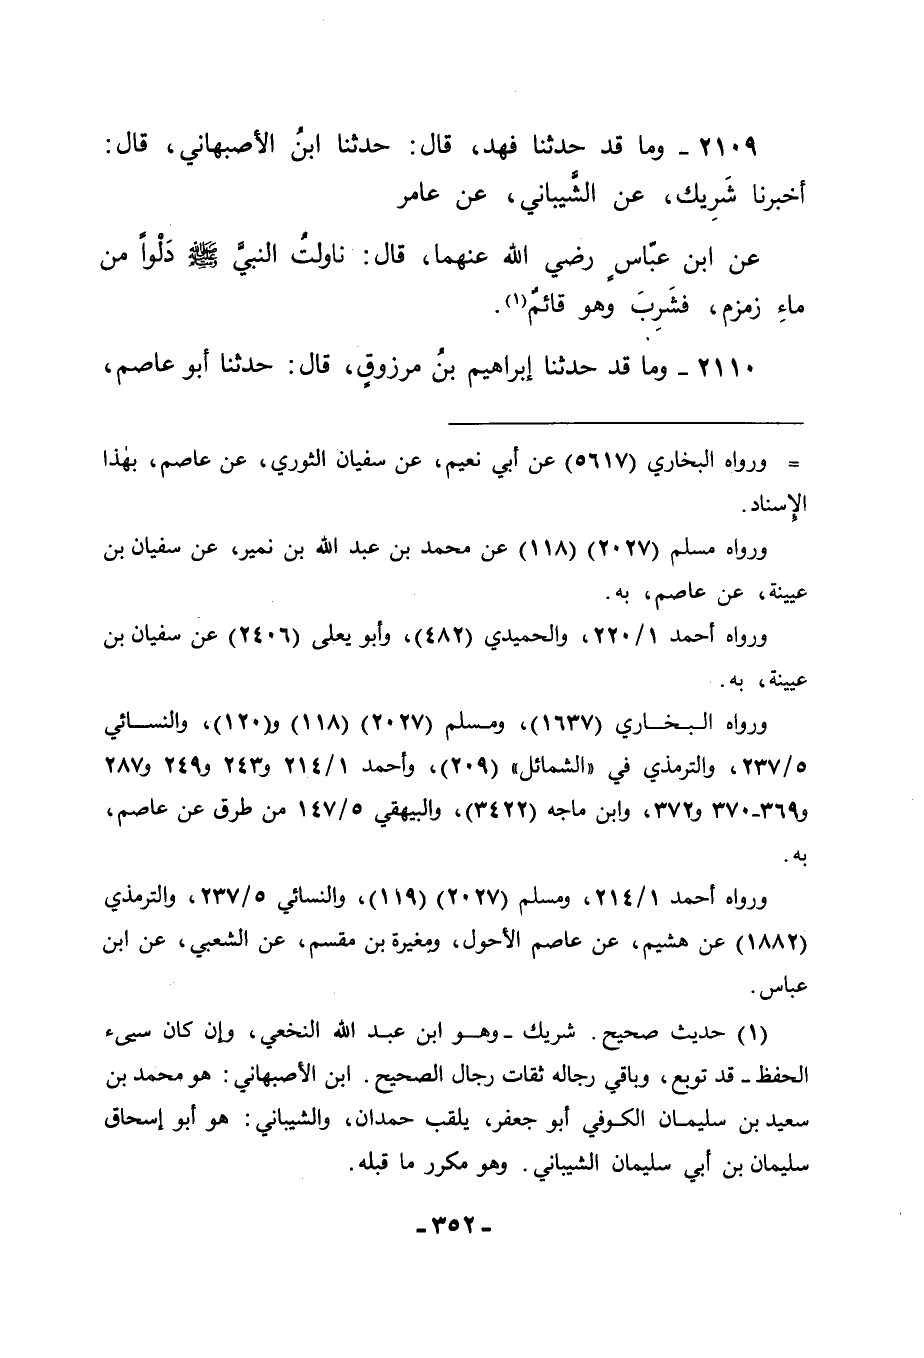 ٢١٠٩ ـ وما قد حدثنا فهد، قال: حدثنا ابنُ الأصبهاني، قال:
أخبرنا شَرِيك، عن الشَّيباني، عن عامر
عن ابن عبّاسٍ رضي الله عنهما، قال: ناولتُ النبيَّ ﷺ دَلْواً من
ماءِ زمزم، فشَرِبَ وهو قائمٌ(١).
٢١١٠ ـ وما قد حدثنا إبراهيم بنُ مرزوقٍ، قال: حدثنا أبو عاصم،
= ورواه البخاري (٥٦١٧) عن أبي نعيم، عن سفيان الثوري، عن عاصم، بهٰذا
الإِسناد.
ورواه مسلم (٢٠٢٧) (١١٨) عن محمد بن عبد الله بن نمير، عن سفيان بن
عيينة، عن عاصم، به.
ورواه أحمد ٢٢٠/١، والحميدي (٤٨٢)، وأبو يعلى (٢٤٠٦) عن سفيان بن
عيينة، به.
ورواه البخاري (١٦٣٧)، ومسلم (٢٠٢٧) (١١٨) و(١٢٠)، والنسائي
٢٣٧/٥، والترمذي في «الشمائل» (٢٠٩)، وأحمد ٢١٤/١ و٢٤٣ و٢٤٩ و٢٨٧
و٣٦٩ـ٣٧٠ و٣٧٢، وابن ماجه (٣٤٢٢)، والبيهقي ١٤٧/٥ من طرق عن عاصم،
به.
ورواه أحمد ٢١٤/١، ومسلم (٢٠٢٧) (١١٩)، والنسائي ٢٣٧/٥، والترمذي
(١٨٨٢) عن هشيم، عن عاصم الأحول، ومغيرة بن مقسم، عن الشعبي، عن ابن
عباس.
(١) حديث صحيح. شريك ـ وهو ابن عبد الله النخعي، وإن كان سيىء
الحفظ ـ قد توبع، وباقي رجاله ثقات رجال الصحيح. ابن الأصبهاني: هو محمد بن
سعيد بن سليمان الكوفي أبو جعفر، يلقب حمدان، والشيباني: هو أبو إسحاق
سليمان بن أبي سليمان الشيباني. وهو مكرر ما قبله.
ـ ٣٥٢ ـ